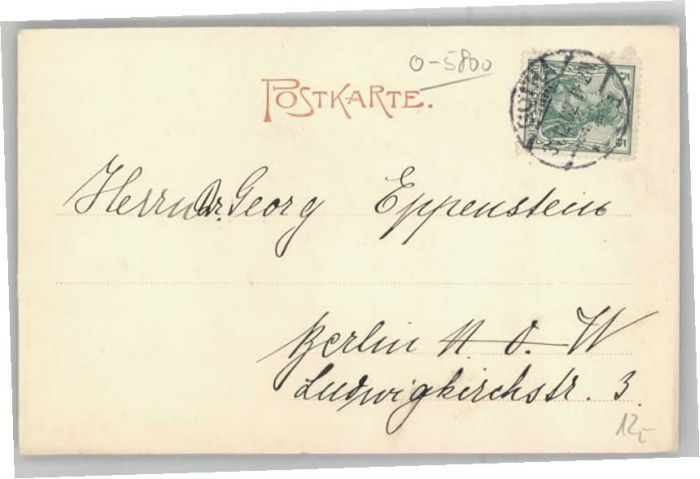 O-5800
POSTKARTE.
5
Herrn Dr. Georg Eppenstein
Berlin N. O. W
Ludwigkirchstr. 3.
12,-